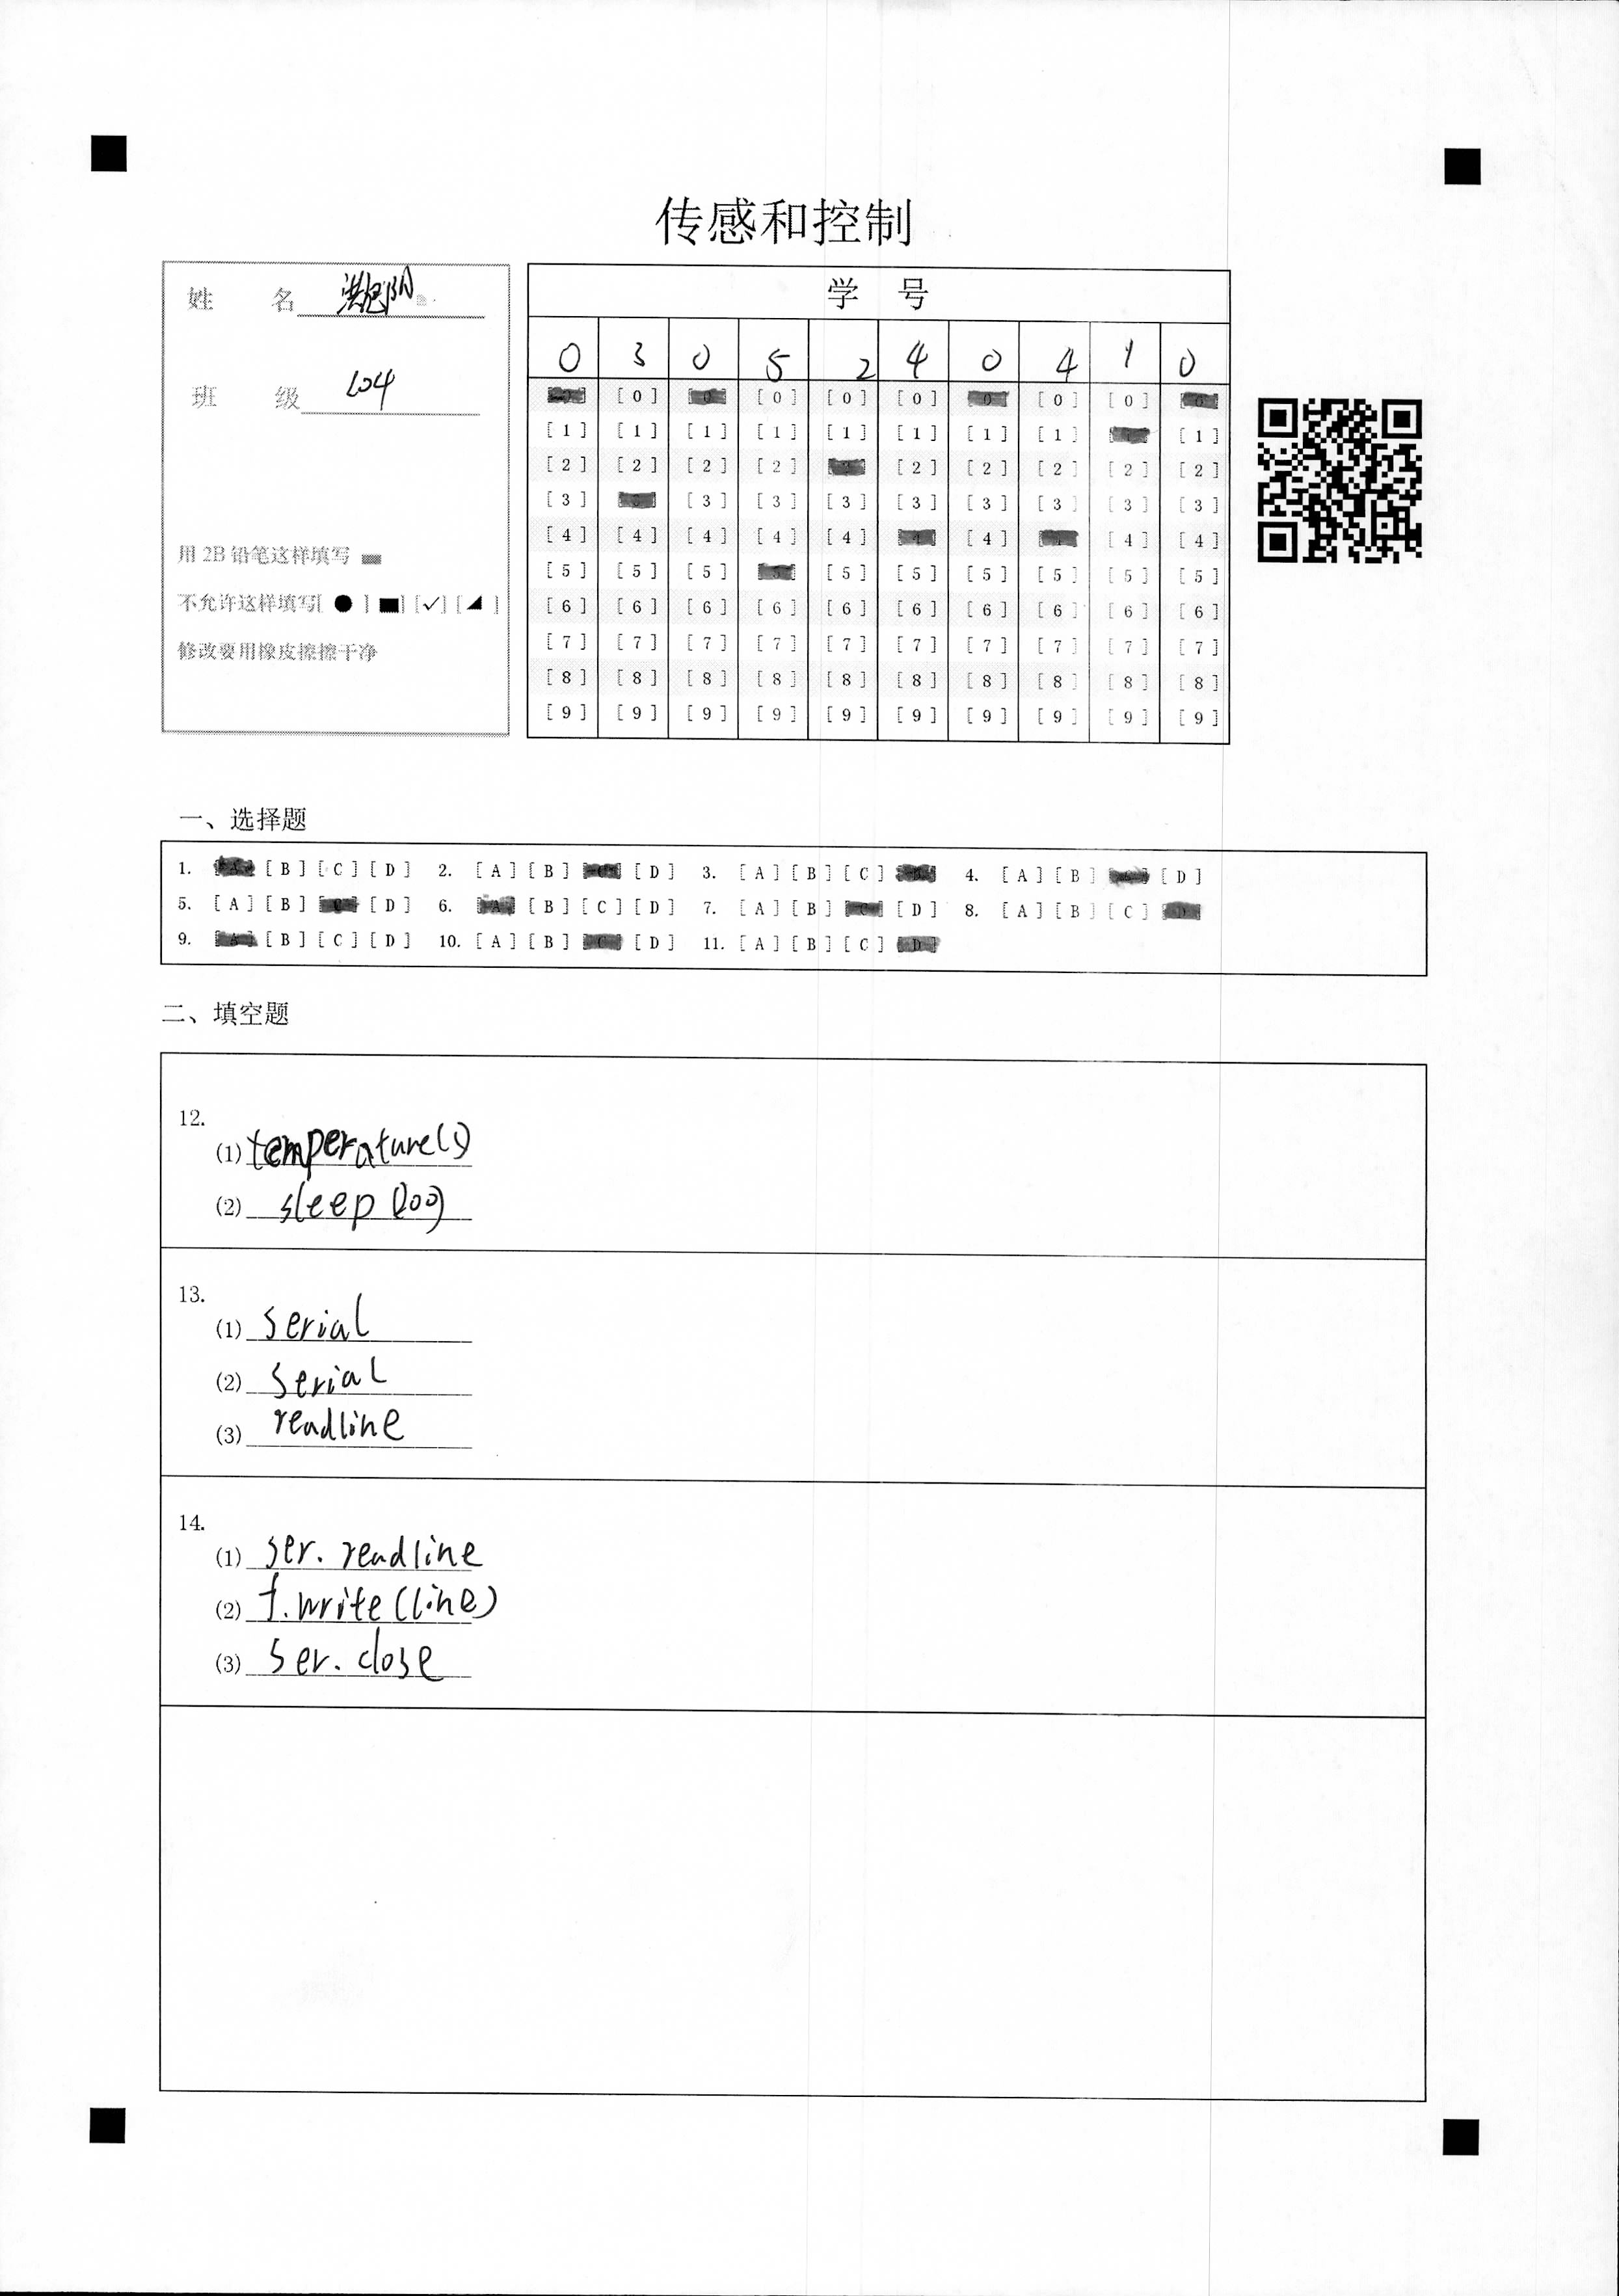 传感和控制
姓 名
班 级 104
用 2B 铅笔这样填写
不允许这样填写[ ● ] [■] [✓] [◢ ]
修改要用橡皮擦擦干净
学 号
0 3 0 5 2 4 0 4 1 0
[0] [0] [0] [0] [0] [0] [0] [0] [0] [0]
[1] [1] [1] [1] [1] [1] [1] [1] [1] [1]
[2] [2] [2] [2] [2] [2] [2] [2] [2] [2]
[3] [3] [3] [3] [3] [3] [3] [3] [3] [3]
[4] [4] [4] [4] [4] [4] [4] [4] [4] [4]
[5] [5] [5] [5] [5] [5] [5] [5] [5] [5]
[6] [6] [6] [6] [6] [6] [6] [6] [6] [6]
[7] [7] [7] [7] [7] [7] [7] [7] [7] [7]
[8] [8] [8] [8] [8] [8] [8] [8] [8] [8]
[9] [9] [9] [9] [9] [9] [9] [9] [9] [9]
一、选择题
1. [A] [B] [C] [D] 2. [A] [B] [C] [D] 3. [A] [B] [C] [D] 4. [A] [B] [C] [D]
5. [A] [B] [C] [D] 6. [A] [B] [C] [D] 7. [A] [B] [C] [D] 8. [A] [B] [C] [D]
9. [A] [B] [C] [D] 10. [A] [B] [C] [D] 11. [A] [B] [C] [D]
二、填空题
12.
(1) temperature()
(2) sleep(100)
13.
(1) serial
(2) serial
(3) readline
14.
(1) ser.readline
(2) f.write(line)
(3) ser.close